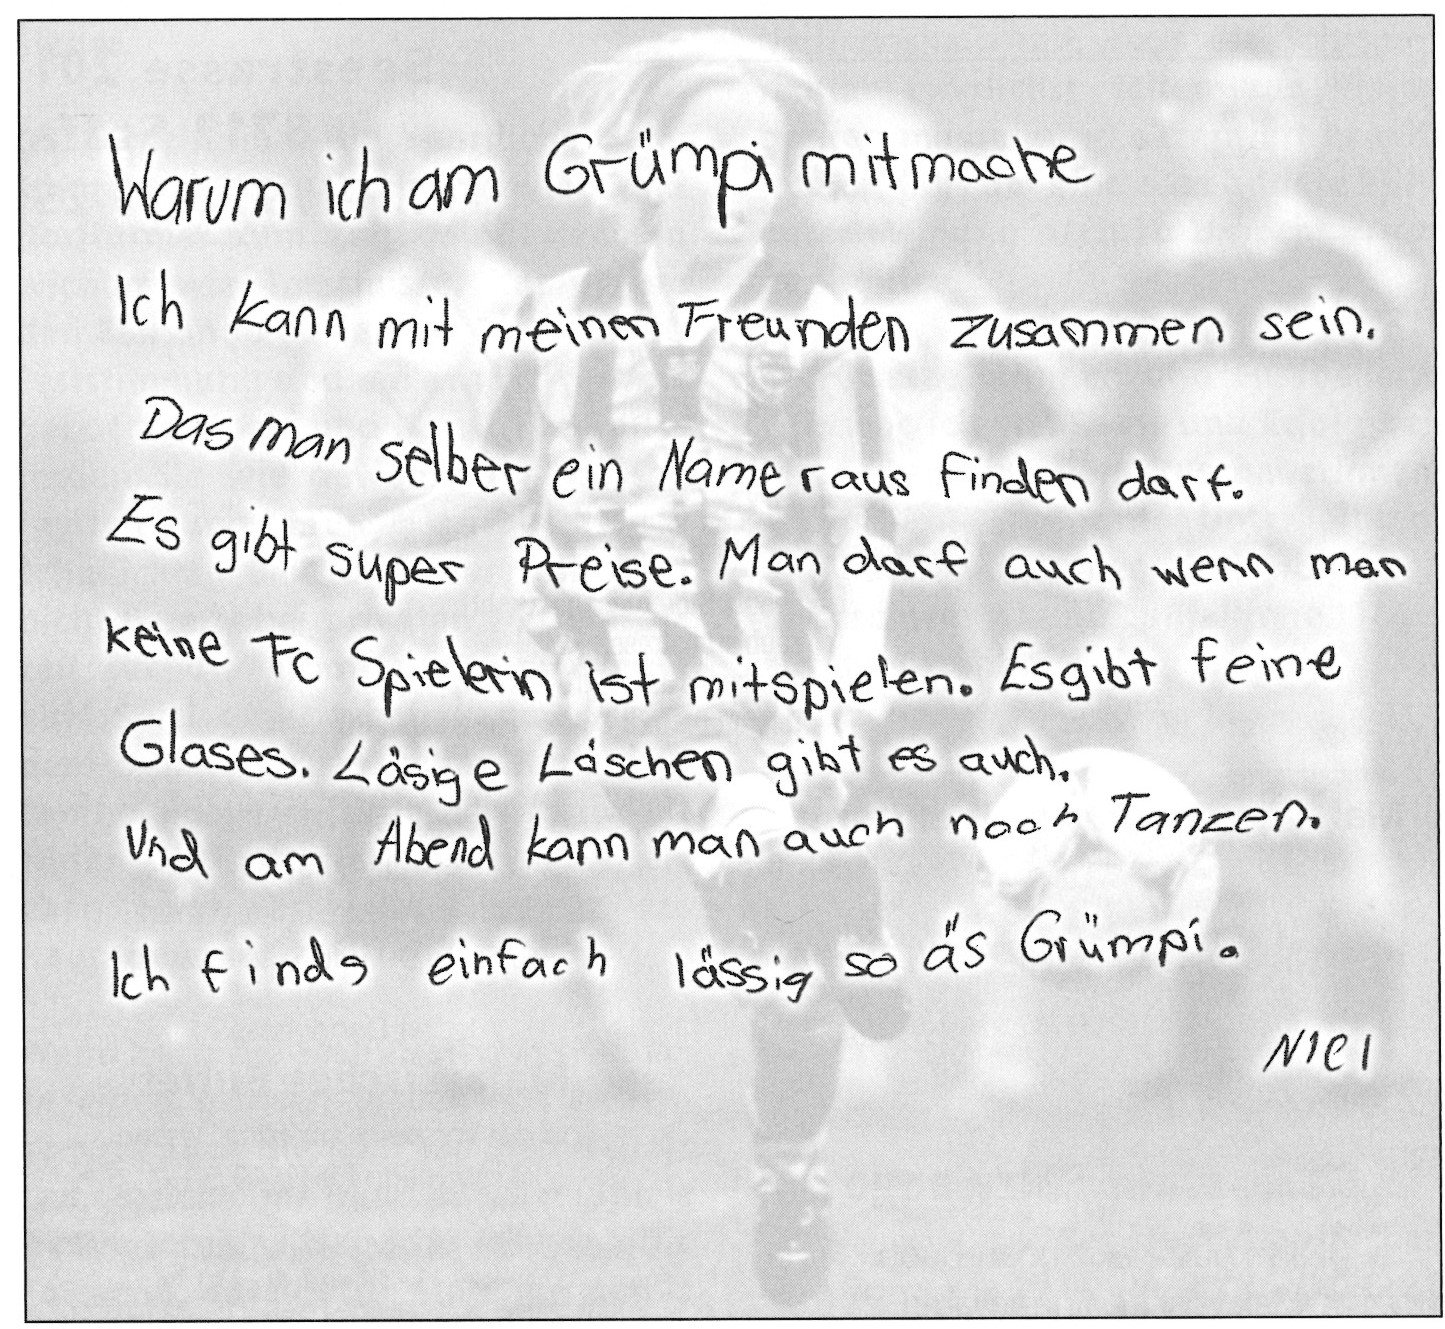 Warum ich am Grümpi mitmache
Ich kann mit meinen Freunden zusammen sein.
Das man selber ein Name raus finden darf.
Es gibt super Preise. Man darf auch wenn man
keine Fc Spielerin ist mitspielen. Es gibt feine
Glases. Läsige Läschen gibt es auch.
Und am Abend kann man auch noch Tanzen.
Ich finds einfach lässig so äs Grümpi.